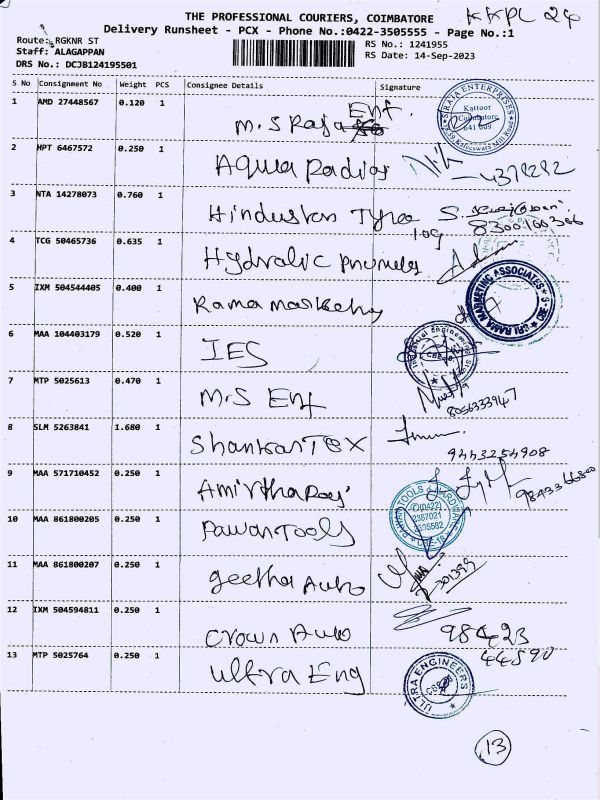 THE PROFESSIONAL COURIERS, COIMBATORE
KKPL 24
Delivery Runsheet - PCX - Phone No.:0422-3505555 - Page No.:1
Route: RGKNR ST
RS No.: 1241955
Staff: ALAGAPPAN
RS Date: 14-Sep-2023
DRS No.: DCJB124195501
S No Consignment No Weight PCS Consignee Details Signature
1 AMD 27448567 0.120 1 M.S Raja Ent.
SRI RAJA ENTERPRISES Kattoor Coimbatore 641 009
2 HPT 6467572 0.250 1 Aqua Radias 4379292
3 NTA 14278073 0.760 1 Hindustan Tyre 8300100366
109
4 TCG 50465736 0.635 1 Hydralic pnumeles
5 IXM 504544405 0.400 1 Rama markehy
SRI RAMA MARKETING ASSOCIATES
6 MAA 104403179 0.520 1 IES
7 MTP 5025613 0.470 1 M.S Ent 8056333947
8 SLM 5263841 1.680 1 Shankar TEX
9443254908
9 MAA 571710452 0.250 1 Amirtharaj 9843366800
10 MAA 861800205 0.250 1 Pawan Tools
PAWAN TOOLS & HARDWARE (0422) 2387021 4505582 CBE-18
11 MAA 861800207 0.250 1 geetha Auto
12 IXM 504594811 0.250 1 Crown Auto 98423
44590
13 MTP 5025764 0.250 1 Ultra Eng
ULTRA ENGINEERS
13